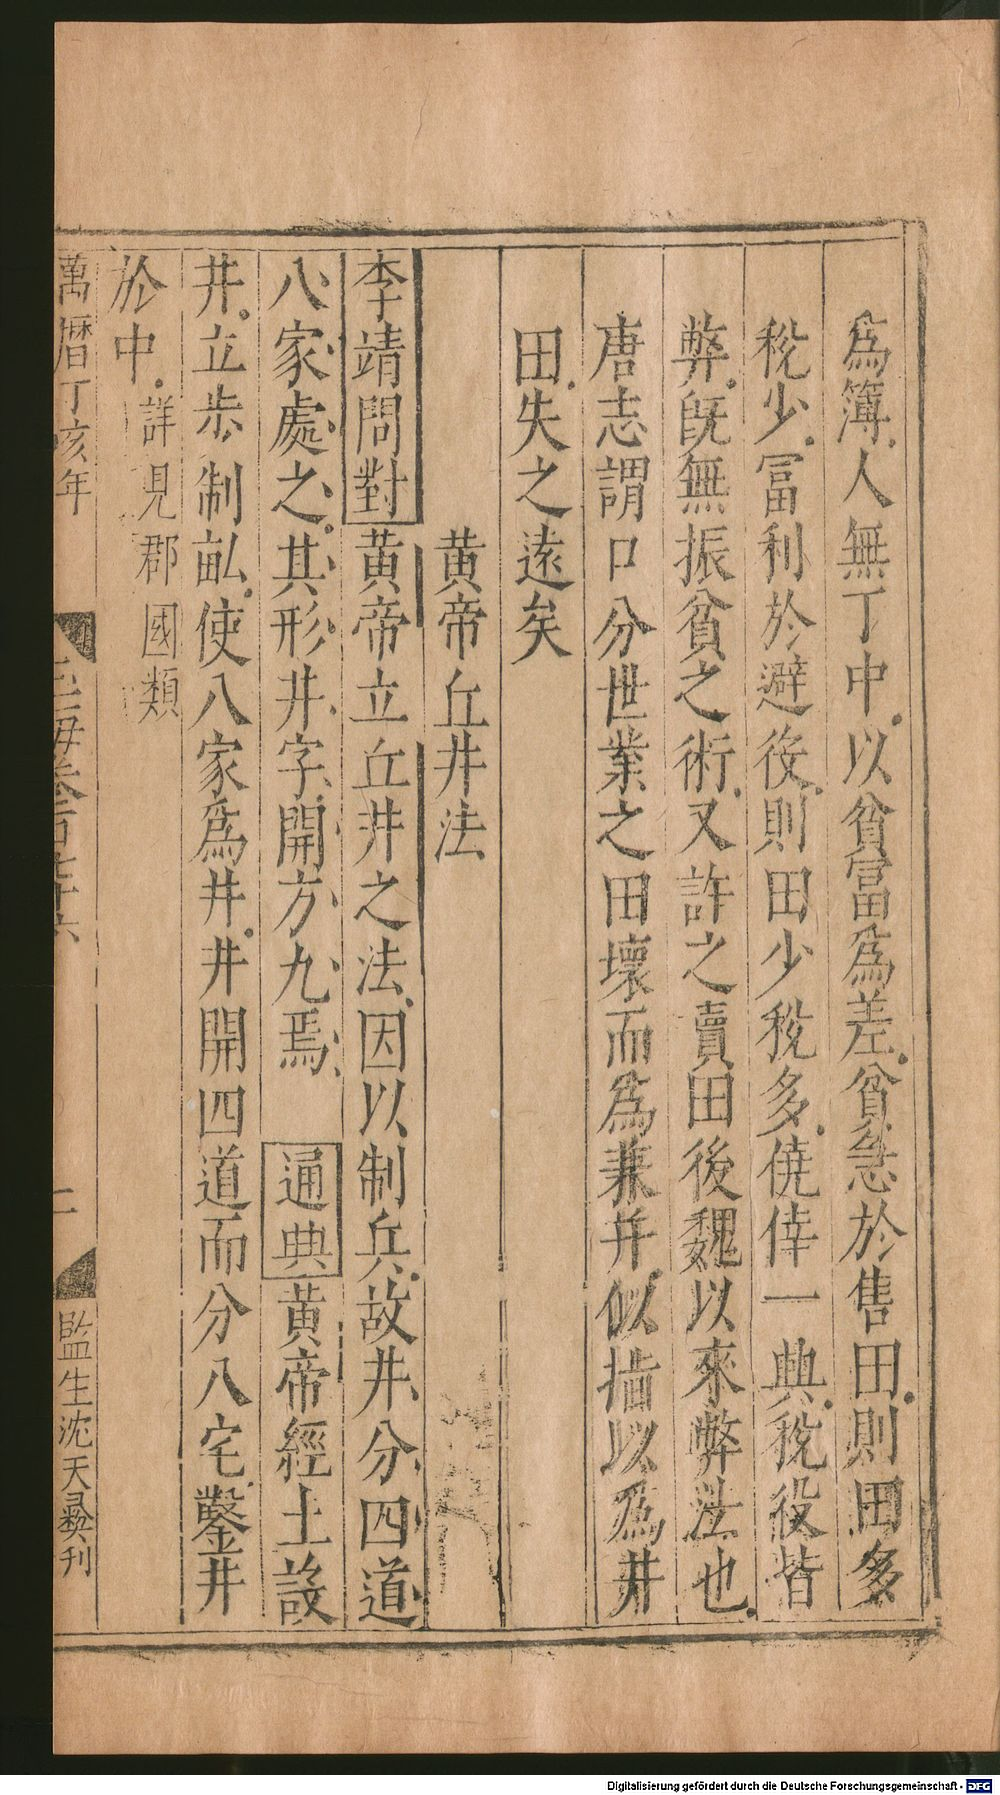 為簿人無丁中以貧富為差貧急於售田則田多
稅少富利於避役則田少稅多僥倖一興稅役皆
弊旣無振貧之術又許之賣田後魏以來弊法也
唐志謂口分世業之田壞而為兼并似指以為井
田失之遠矣
黄帝丘井法
李靖問對黄帝立丘井之法因以制兵故井分四道
八家處之其形井字開方九焉 通典黄帝經土設
井立步制畝使八家為井井開四道而分八宅鑿井
於中詳見郡國類
萬曆丁亥年
玉海卷百七十六
二
監生沈天彞刊
Digitalisierung gefördert durch die Deutsche Forschungsgemeinschaft - DFG